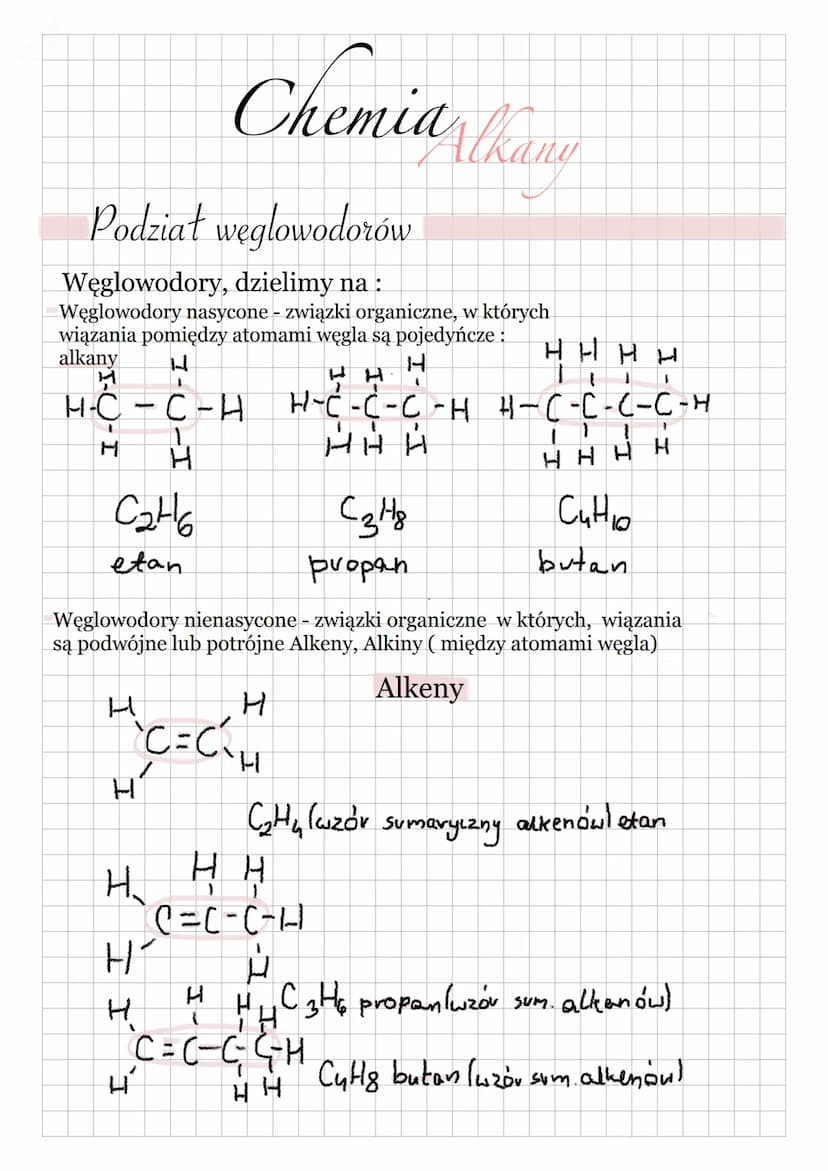 Chemia
Alkany
Podział węglowodorów
Węglowodory, dzielimy na :
Węglowodory nasycone - związki organiczne, w których
wiązania pomiędzy atomami węgla są pojedyńcze :
alkany
H H H H H H H H H
H-C - C-H H-C-C-C-H H-C-C-C-C-H
H H H H H H H H H
C2H6 C3H8 C4H10
etan propan butan
Węglowodory nienasycone - związki organiczne w których, wiązania
są podwójne lub potrójne Alkeny, Alkiny ( między atomami węgla)
Alkeny
H H
C=C
H H
C2H4 (wzór sumaryczny alkenów) etan
H H H
C=C-C-H
H H
C3H6 propan (wzór sum. alkenów)
H H H H
C=C-C-C-H
H H H
C4H8 butan (wzór sum. alkenów)